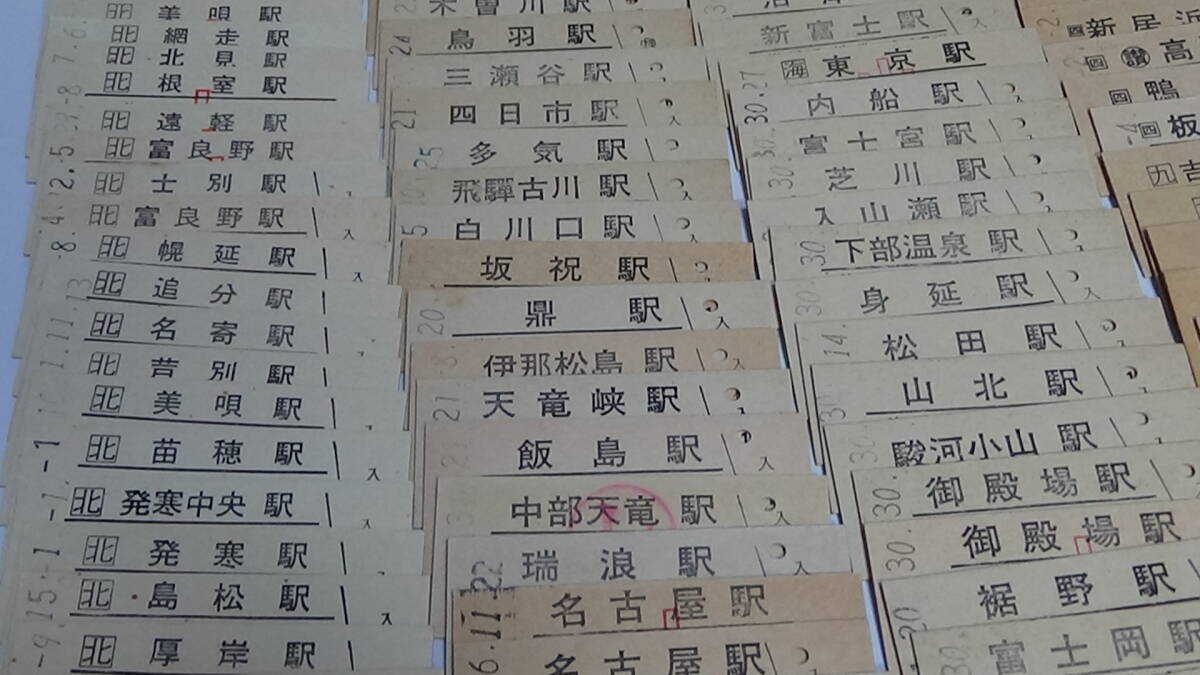 北 美唄駅
北 網走駅
北 北見駅
北 根室駅
北 遠軽駅
北 富良野駅
北 士別駅
北 富良野駅
北 幌延駅
北 追分駅
北 名寄駅
北 芦別駅
北 美唄駅
北 苗穂駅
北 発寒中央駅
北 発寒駅
北 島松駅
北 厚岸駅
木曽川駅
鳥羽駅
三瀬谷駅
四日市駅
多気駅
飛騨古川駅
白川口駅
坂祝駅
鼎駅
伊那松島駅
天竜峡駅
飯島駅
中部天竜駅
瑞浪駅
名古屋駅
名古屋駅
新富士駅
海 東京駅
内船駅
富士宮駅
芝川駅
入山瀬駅
下部温泉駅
身延駅
松田駅
山北駅
駿河小山駅
御殿場駅
御殿場駅
裾野駅
富士岡駅
四 新居浜
四 讃 高
四 鴨
四 板
九 吉